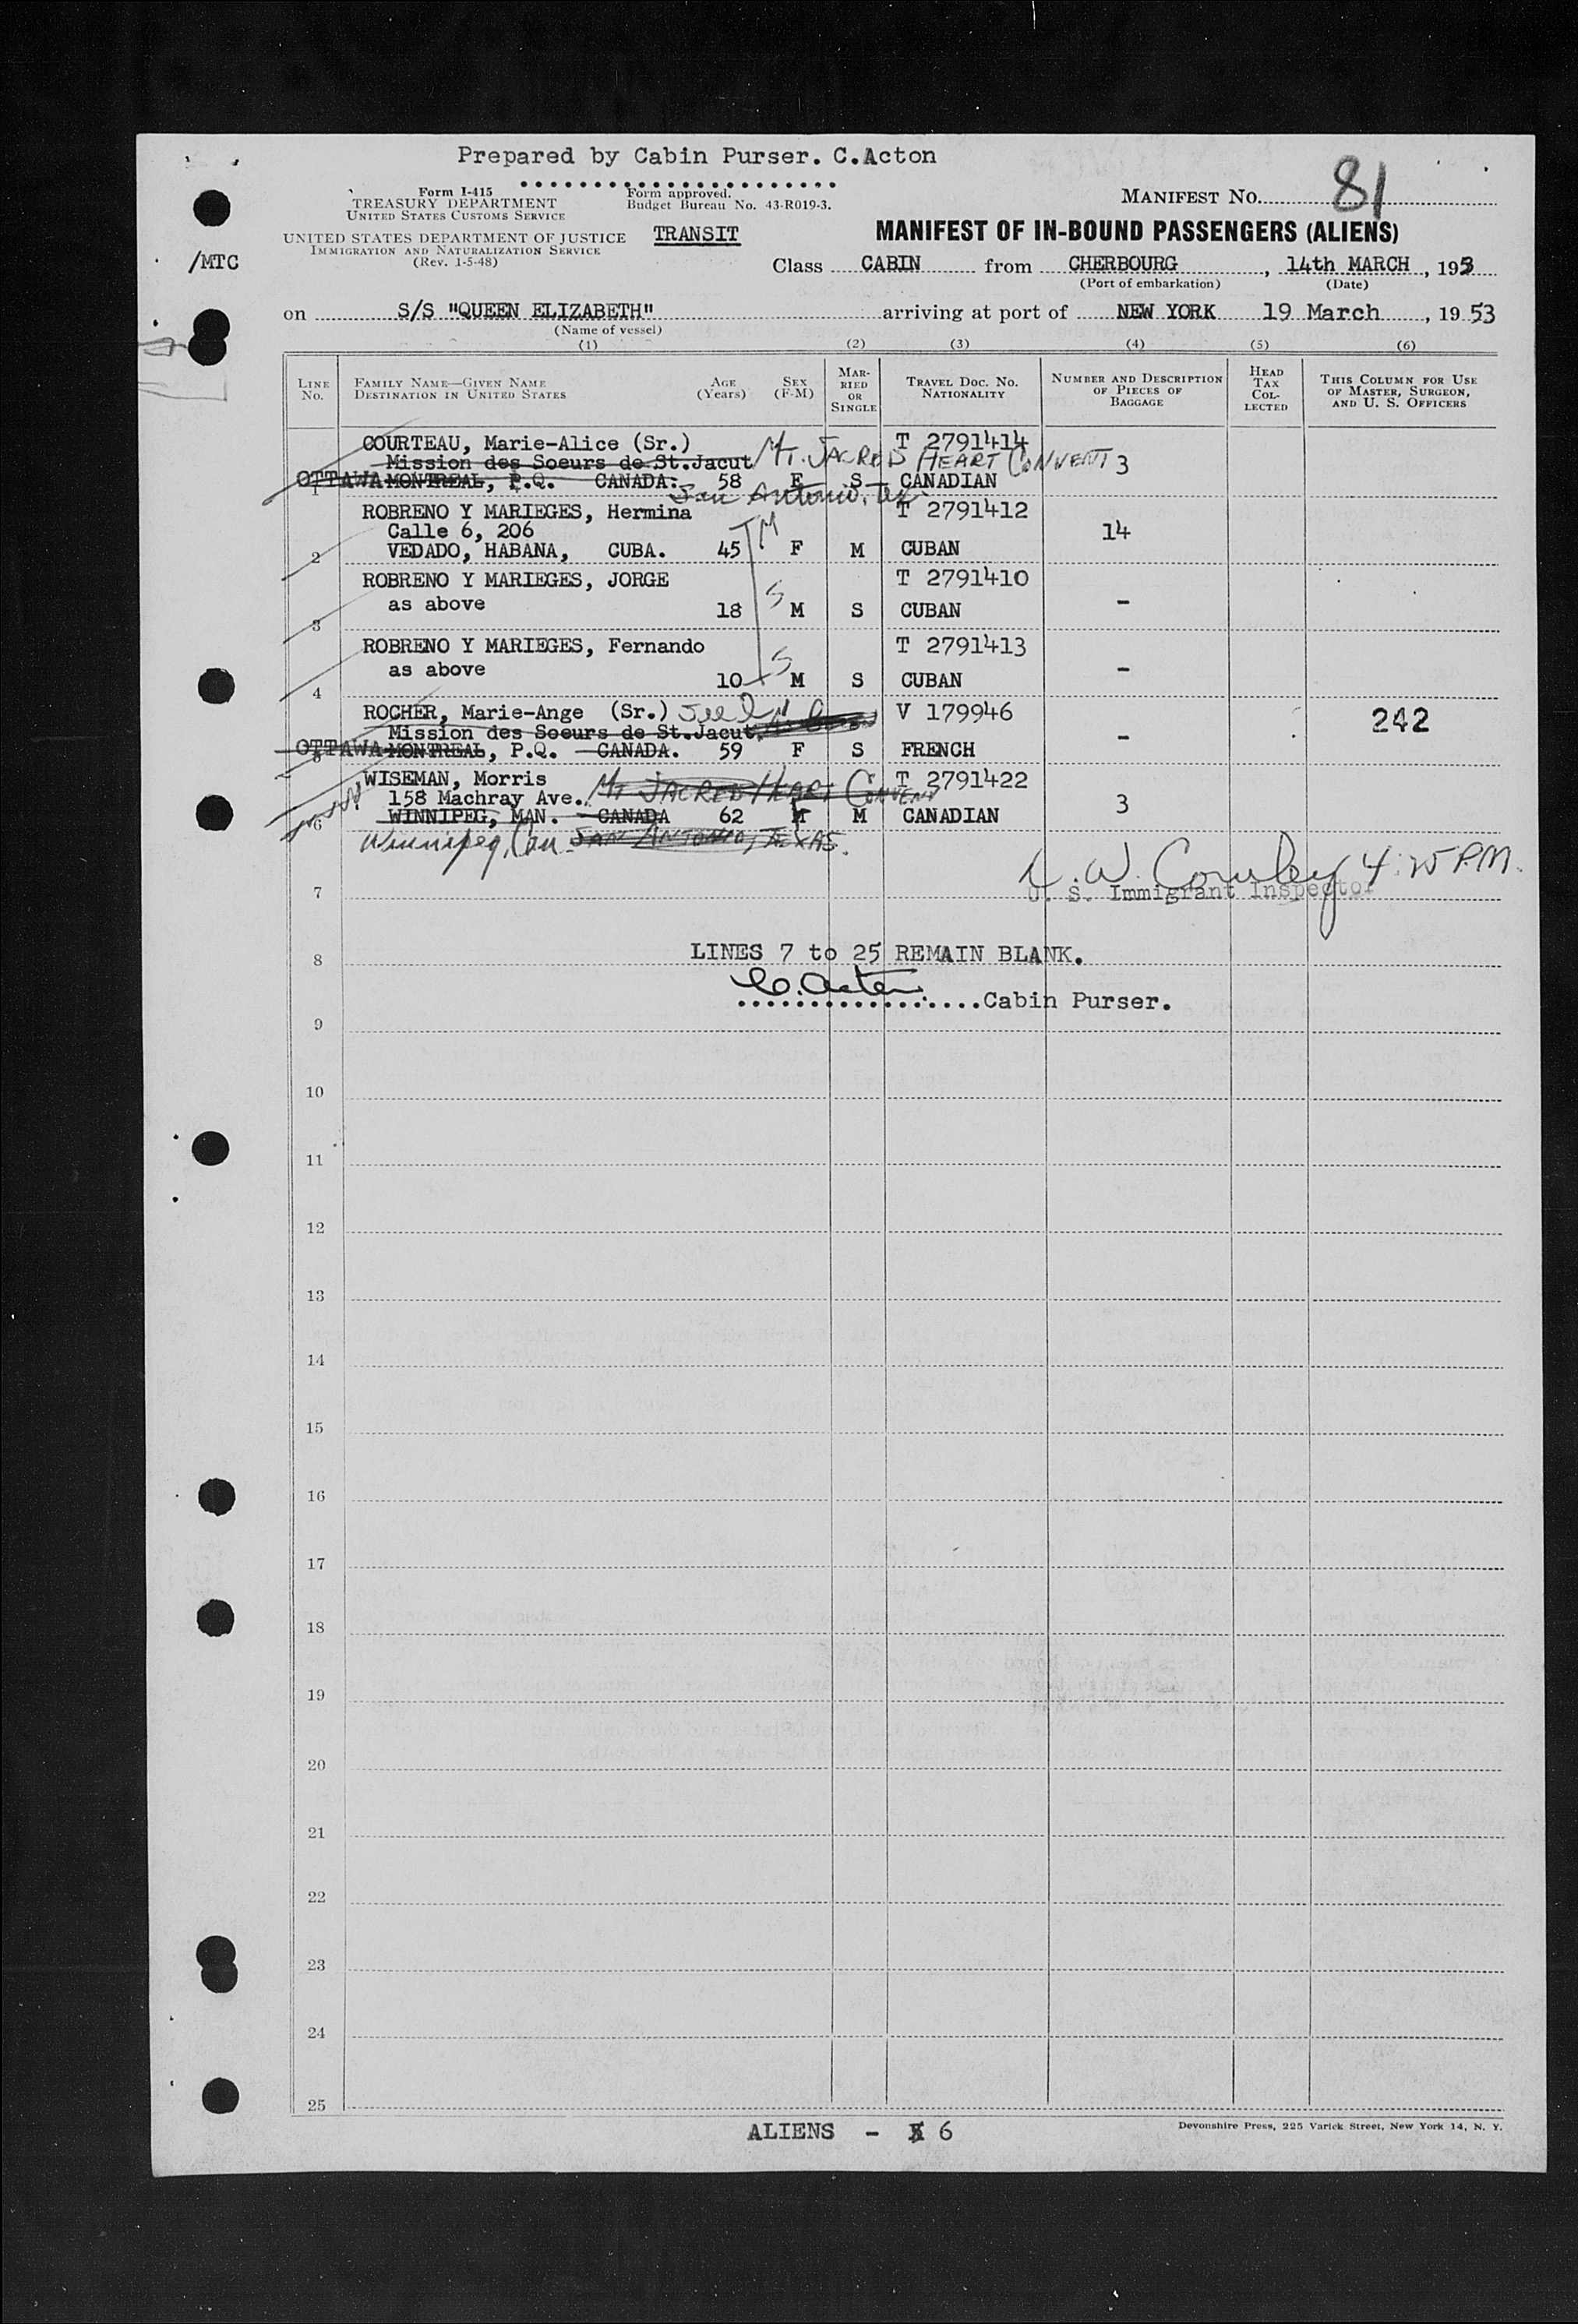 Prepared by Cabin Purser. C.Acton
Form I-415
TREASURY DEPARTMENT
UNITED STATES CUSTOMS SERVICE
Form approved.
Budget Bureau No. 43-R019-3.
MANIFEST NO. 81
UNITED STATES DEPARTMENT OF JUSTICE
IMMIGRATION AND NATURALIZATION SERVICE
(Rev. 1-5-48)
TRANSIT
MANIFEST OF IN-BOUND PASSENGERS (ALIENS)
/MTC
Class CABIN from CHERBOURG, 14th MARCH, 1953
(Port of embarkation) (Date)
on S/S "QUEEN ELIZABETH" arriving at port of NEW YORK 19 March, 1953
(Name of vessel)
(1) (2) (3) (4) (5) (6)
LINE NO. FAMILY NAME—GIVEN NAME DESTINATION IN UNITED STATES AGE (Years) SEX (F-M) MARRIED OR SINGLE TRAVEL DOC. NO. NATIONALITY NUMBER AND DESCRIPTION OF PIECES OF BAGGAGE HEAD TAX COLLECTED THIS COLUMN FOR USE OF MASTER, SURGEON, AND U. S. OFFICERS
COURTEAU, Marie-Alice (Sr.) T 2791414
Mission des Soeurs de St.Jacut MT. SACRED HEART CONVENT 3
1 OTTAWA MONTREAL, P.Q. CANADA. 58 F S CANADIAN
San Antonio, Tex.
ROBRENO Y MARIEGES, Hermina T 2791412
Calle 6, 206 M 14
2 VEDADO, HABANA, CUBA. 45 F M CUBAN
ROBRENO Y MARIEGES, JORGE T 2791410
as above S -
3 18 M S CUBAN
ROBRENO Y MARIEGES, Fernando T 2791413
as above S -
4 10 M S CUBAN
ROCHER, Marie-Ange (Sr.) V 179946 242
Mission des Soeurs de St.Jacut -
5 OTTAWA MONTREAL, P.Q. CANADA. 59 F S FRENCH
WISEMAN, Morris T 2791422
158 Machray Ave. MT SACRED HEART CONVENT 3
6 WINNIPEG, MAN. CANADA 62 M M CANADIAN
Winnipeg, Can SAN ANTONIO, TEXAS.
4:25 P.M.
7 U. S. Immigrant Inspector
8 LINES 7 to 25 REMAIN BLANK.
C. Acton
Cabin Purser.
9
10
11
12
13
14
15
16
17
18
19
20
21
22
23
24
25
ALIENS - 6
Devonshire Press, 225 Varick Street, New York 14, N. Y.